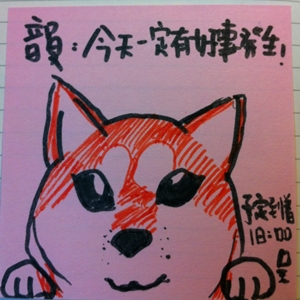 韻:今天一定有好事發生!
18:00